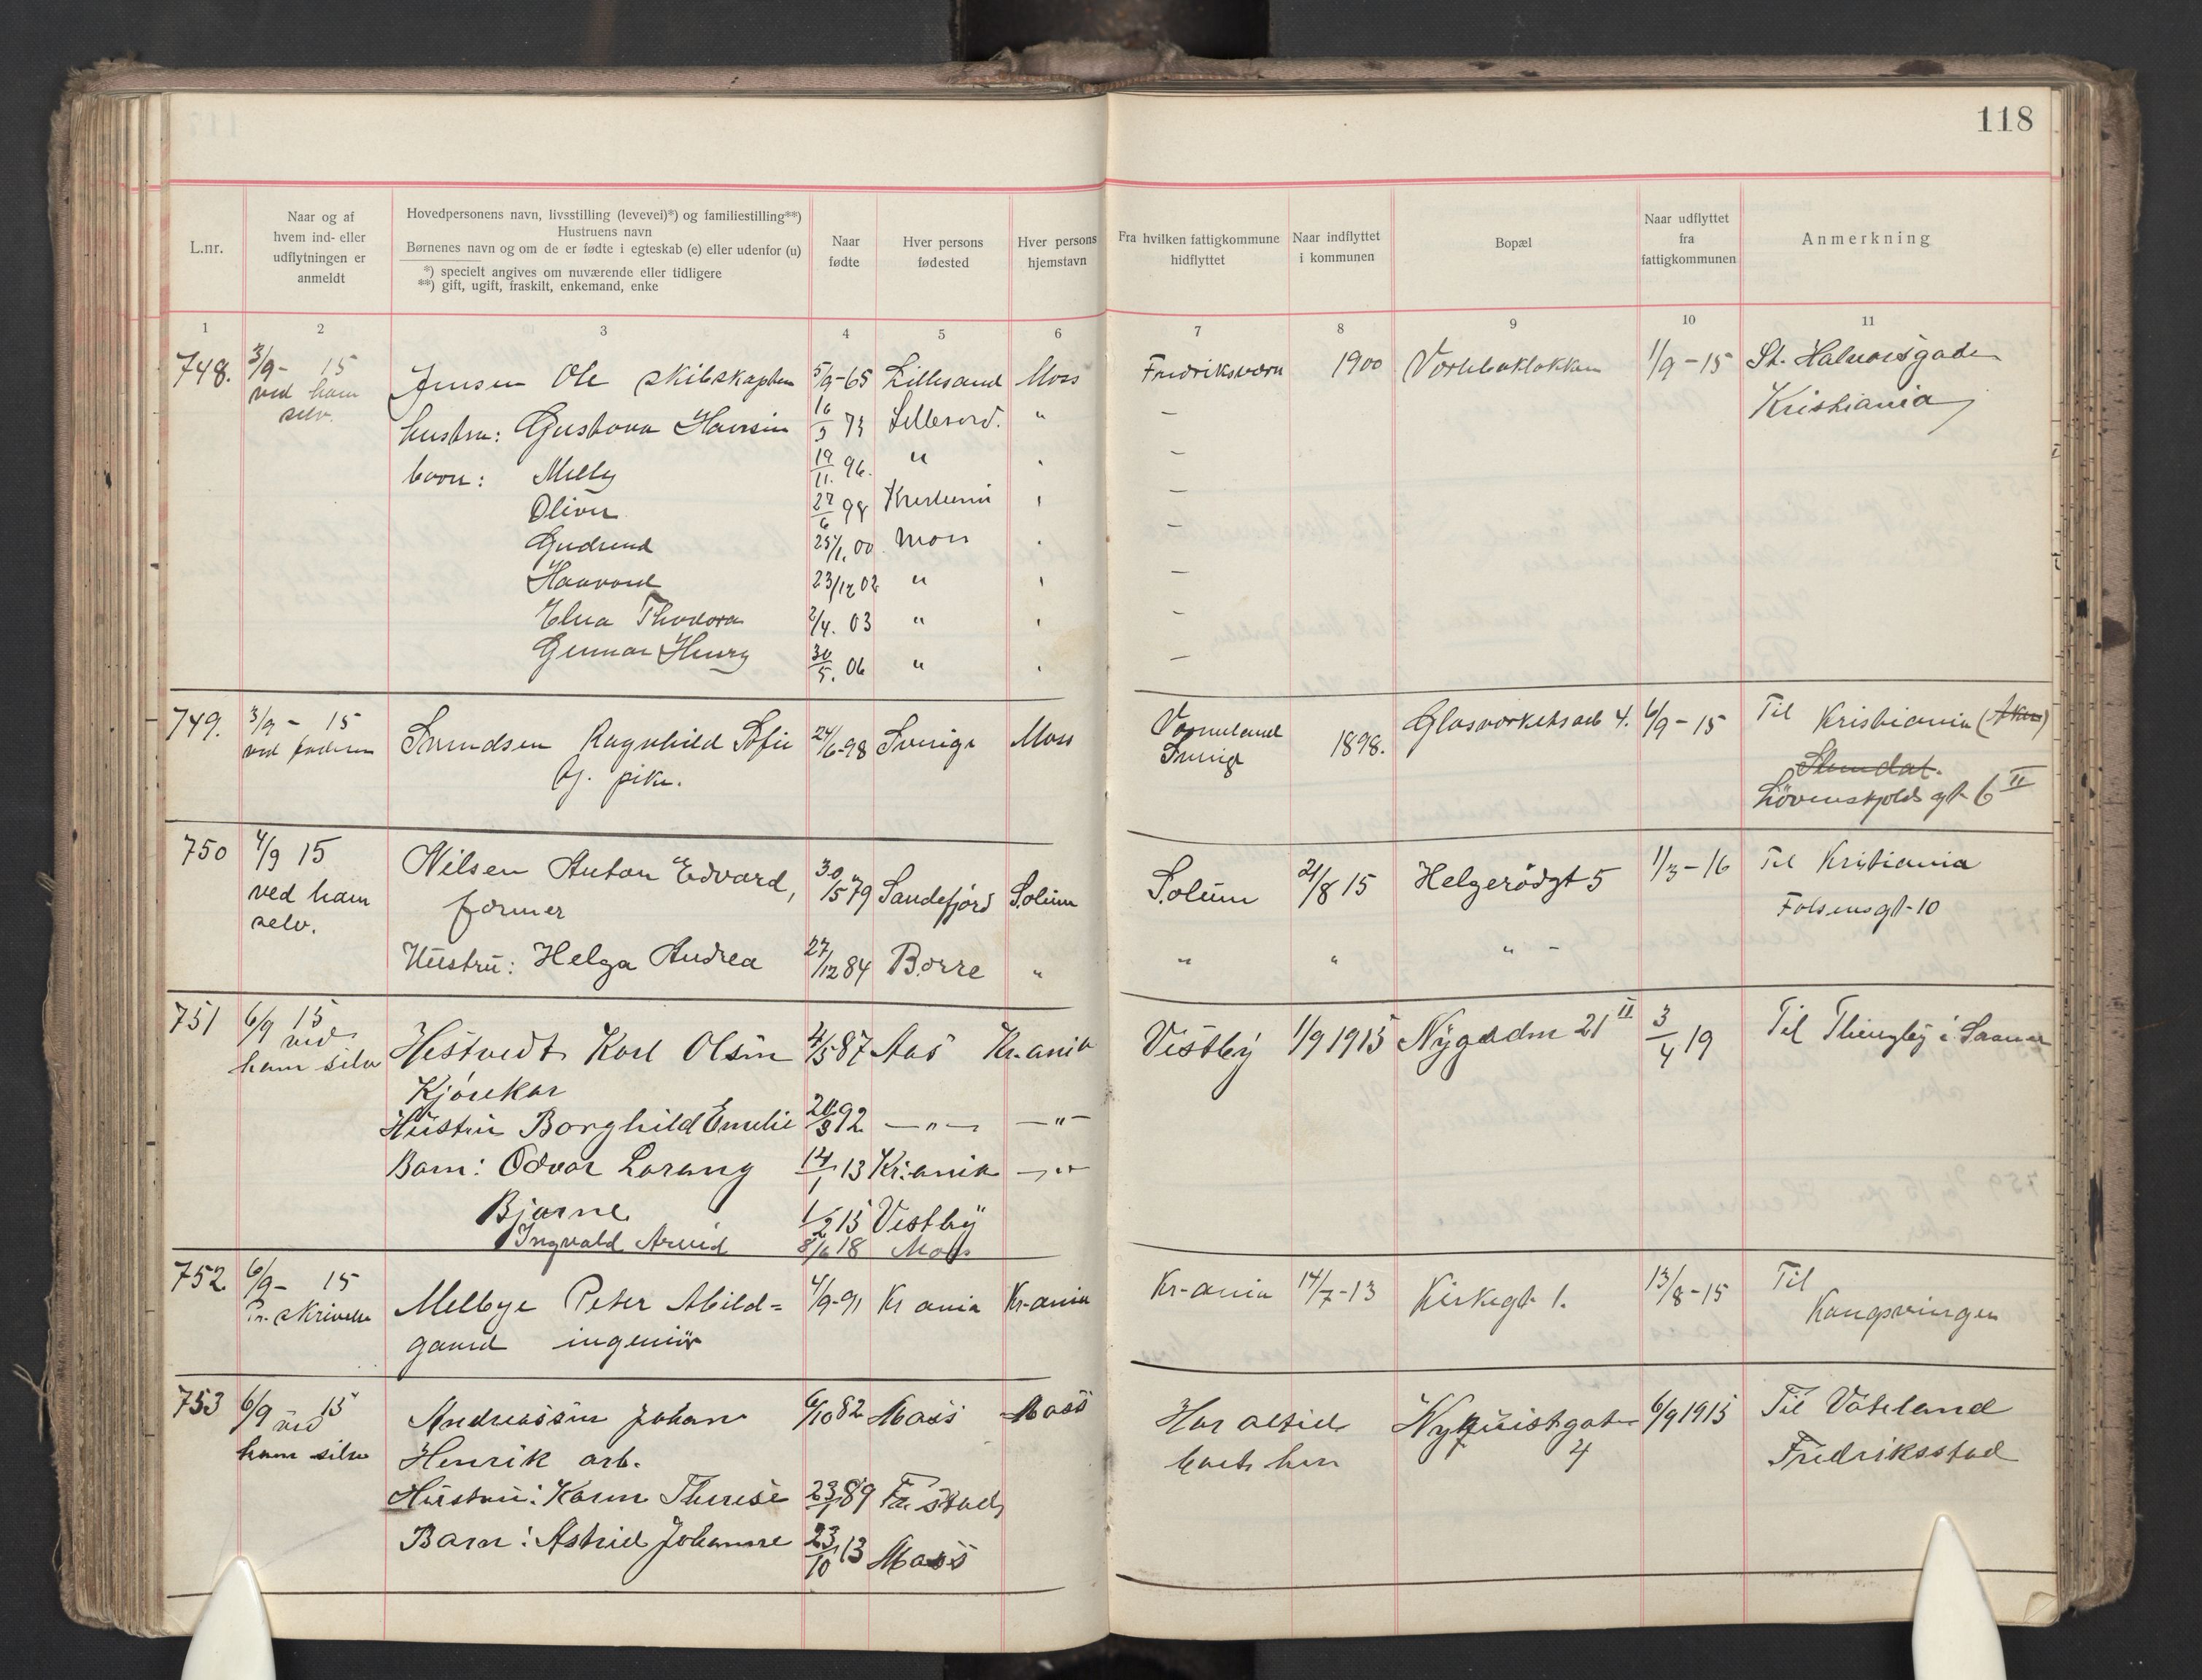 118
L.nr.
Naar og af
hvem ind- eller
udflytningen er
anmeldt
Hovedpersonens navn, livsstilling (levevei)*) og familiestilling**)
Hustruens navn
Børnenes navn og om de er fødte i egteskab (e) eller udenfor (u)
*) specielt angives om nuværende eller tidligere
**) gift, ugift, fraskilt, enkemand, enke
Naar
fødte
Hver persons
fødested
Hver persons
hjemstavn
Fra hvilken fattigkommune
hidflyttet
Naar indflyttet
i kommunen
Bopæl
Naar udflyttet
fra
fattigkommunen
Anmerkning
1 2 3 4 5 6 7 8 9 10 11
748. 3/9- 15 Jensen Ole skibskapten 5/9-65 Lillesand Moss Fredriksværn 1900 1/9-15 St. Halvorsgade
ved ham
selv.
hustru: Gustava 16/3 73 Lillesand. " — Kristiania
børn: Milly 19/11. 96. " —
Oliver 27/6 98 Kristiania —
Gudrund 25/1. 00 Moss —
Haavard 23/12 02 " —
Elna Thodora 2/4. 03 " —
Gunnar Henry 30/5. 06 " —
749. 3/9- 15 Svendsen Ragnhild Sofie 24/6-98 Sverige Moss Vermeland 1898. Glasverketsarb 4. 6/9-15 Til Kristiania (Aker)
ved faderen Sverige
pike.
Løvenskjolds gt 6 II
750 4/9 15 Nilsen Anton Edvard, 30/5 79 Sandefjord Solum Solum 21/8 15 Helgerödgt 5 1/3-16 Til Kristiania
ved ham former gt-10
selv.
Hustru: Helga Andrea 27/12 84 Borre " " " " -
751 6/9 15 Hestvedt Karl Olsen 4/5 87 Aas Kr.ania Vestby 1/9 1915 Nygaden 21 II 3/4 19 Til Thingby i Saaner
ved
ham selv
Kjørekar
Hustru Borghild Emelie 92 — " — — " —
Barn: Odvar Lorang 14/1 13 Kr.ania — " —
Bjarne 1/2 15 Vestby
Ingvald Arvid 8/6 18 Moss
752 6/9- 15 Melbye Peter Abild= 4/9-91 Kr ania Kr-ania Kr-ania 14/7-13 Kirkegt 1. 13/8-15 Til
Pr. skrivelse gaard ingeniør Kongsvingen
753 6/9 15 Andreassen Johan 6/10 82 Moss Moss Har altid Nyquistgaten 6/9 1915 Til
ved
ham selv Henrik arb. boet her 4 Fredriksstad
Hustru: Karen Therese 89 Fr. stad
Barn: Astrid Johanne 23/10 13 Moss